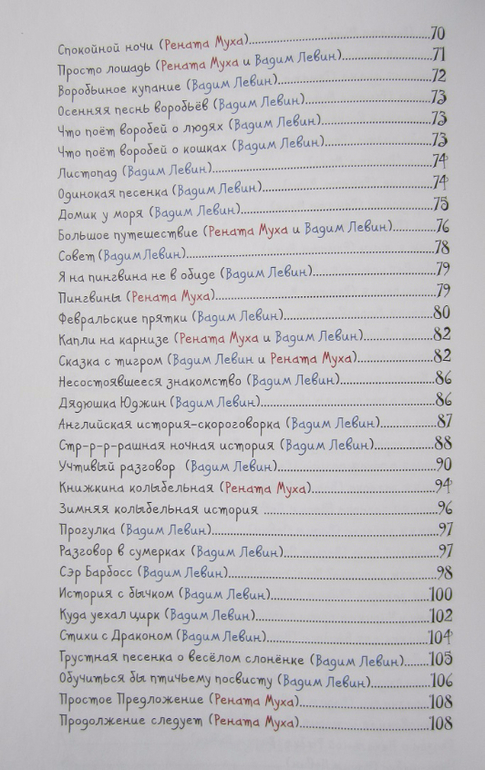 Спокойной ночи (Рената Муха)........70
Просто лошадь (Рената Муха и Вадим Левин)........71
Воробьиное купание (Вадим Левин)........72
Осенняя песнь воробьёв (Вадим Левин)........73
Что поёт воробей о людях (Вадим Левин)........73
Что поёт воробей о кошках (Вадим Левин)........73
Листопад (Вадим Левин)........74
Одинокая песенка (Вадим Левин)........74
Домик у моря (Вадим Левин)........75
Большое путешествие (Рената Муха и Вадим Левин)........76
Совет (Вадим Левин)........78
Я на пингвина не в обиде (Вадим Левин)........79
Пингвины (Рената Муха)........79
Февральские прятки (Вадим Левин)........80
Капли на карнизе (Рената Муха и Вадим Левин)........82
Сказка с тигром (Вадим Левин и Рената Муха)........82
Несостоявшееся знакомство (Вадим Левин)........86
Дядюшка Юджин (Вадим Левин)........86
Английская история-скороговорка (Вадим Левин)........87
Стр-р-р-рашная ночная история (Вадим Левин)........88
Учтивый разговор (Вадим Левин)........90
Книжкина колыбельная (Рената Муха)........94
Зимняя колыбельная история ........96
Прогулка (Вадим Левин)........97
Разговор в сумерках (Вадим Левин)........97
Сэр Барбосс (Вадим Левин)........98
История с бычком (Вадим Левин)........100
Куда уехал цирк (Вадим Левин)........102
Стихи с Драконом (Вадим Левин)........104
Грустная песенка о весёлом слонёнке (Вадим Левин)........105
Обучиться бы птичьему посвисту (Вадим Левин)........106
Простое Предложение (Рената Муха)........108
Продолжение следует (Рената Муха)........108